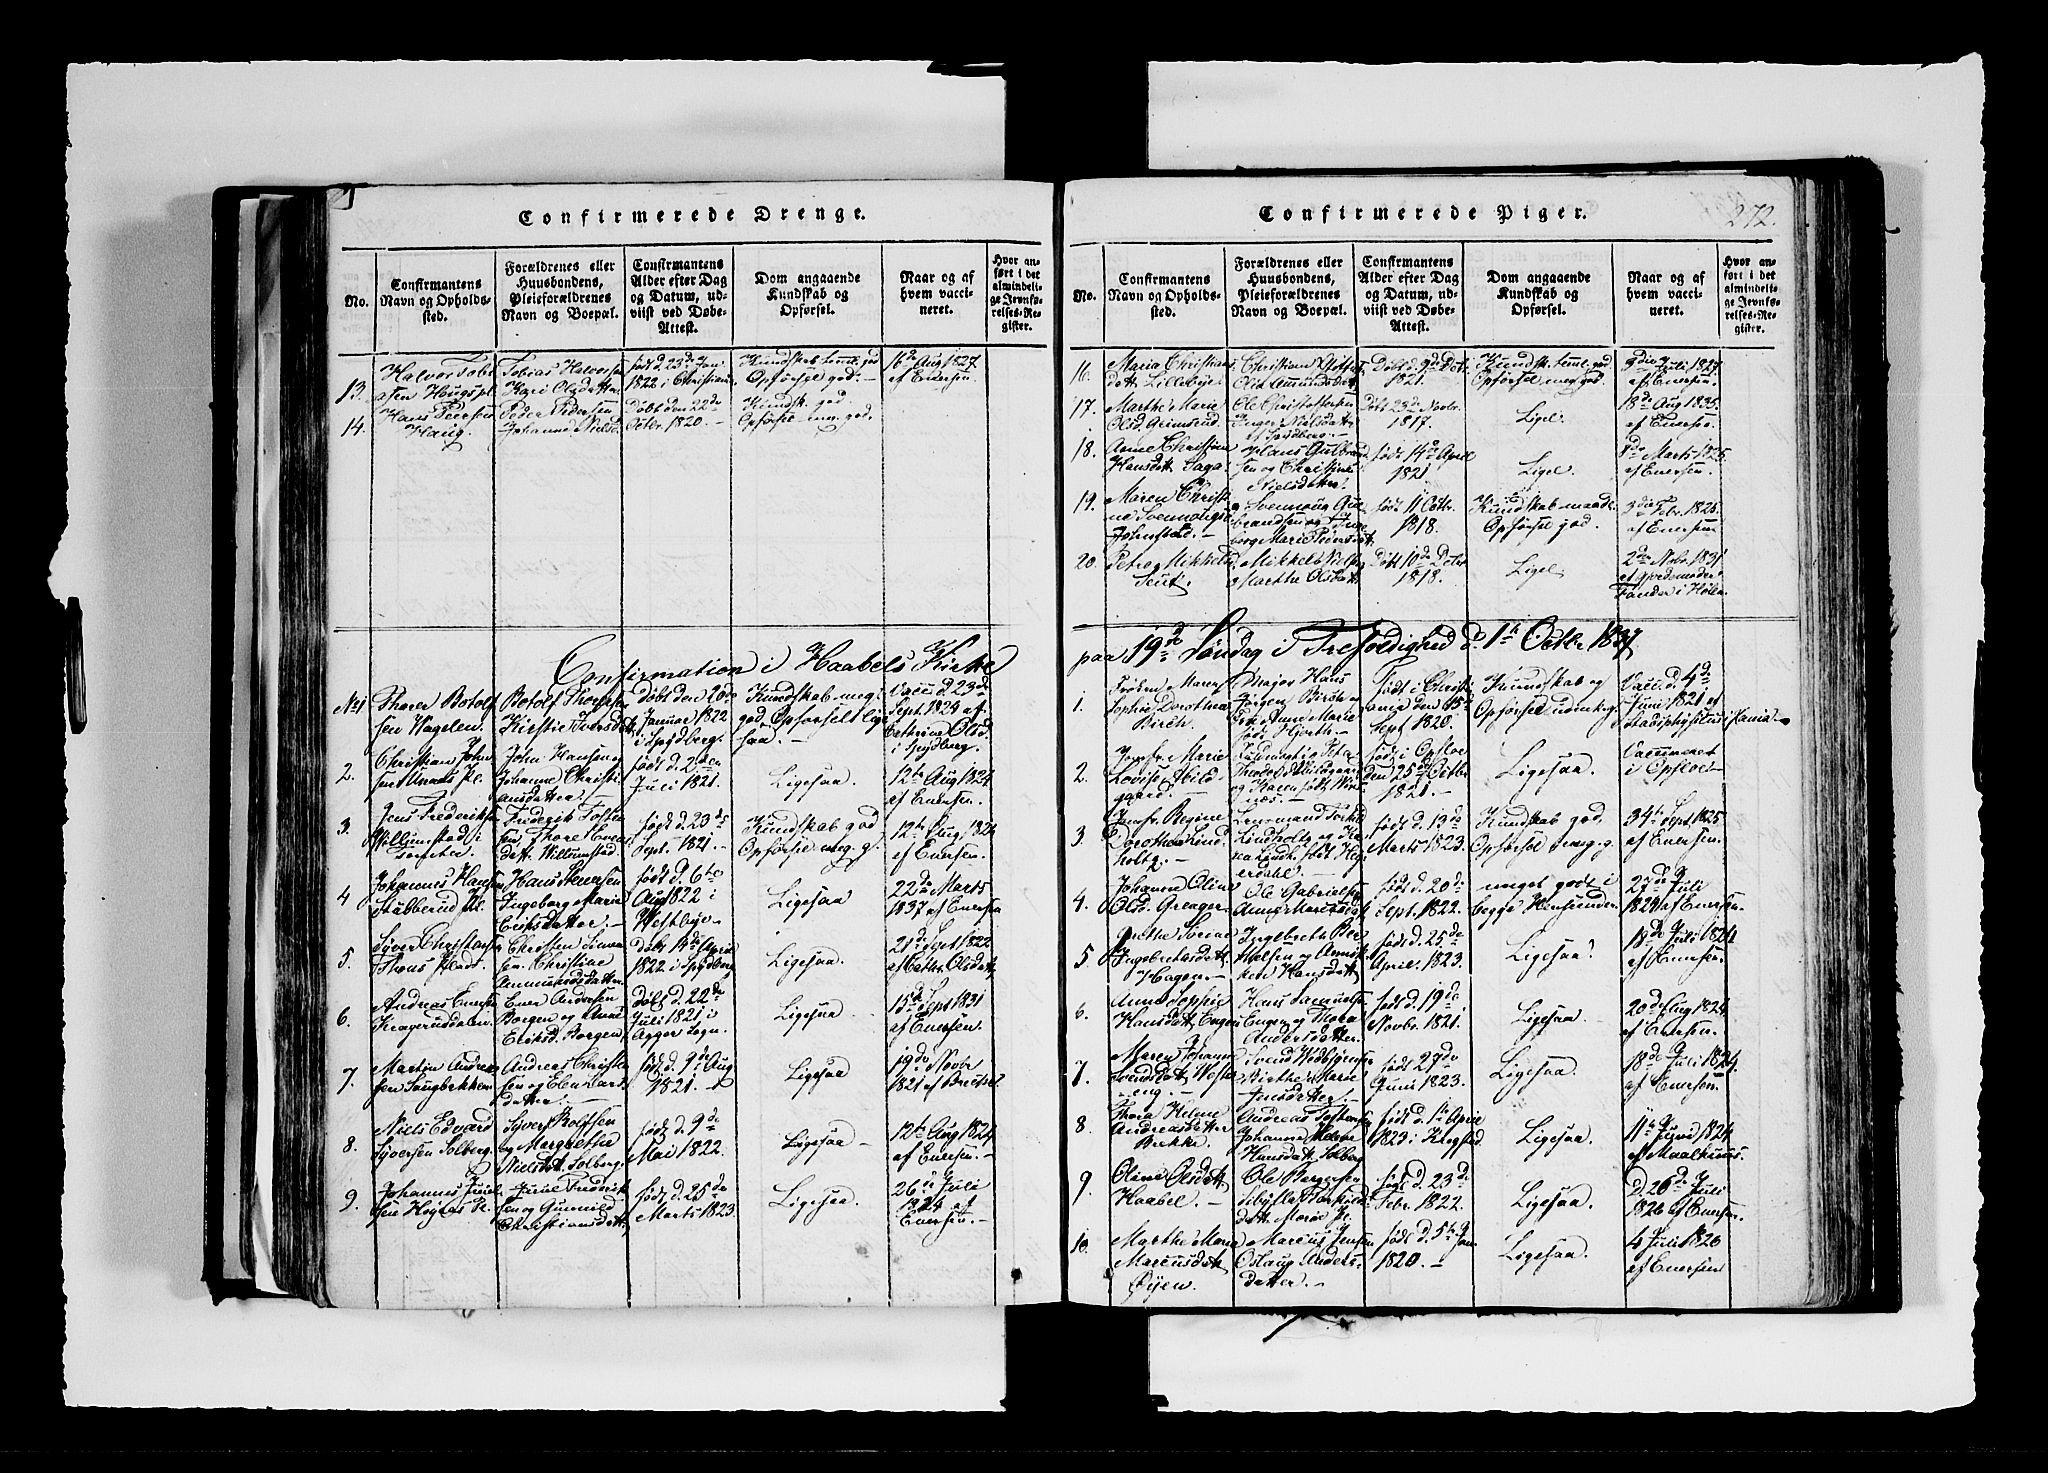 Confirmerede Drenge.
No.
Confirmantens
Navn og Opholds-
sted.
Forældrenes eller
Huusbondens,
Pleieforældrenes
Navn og Boepæl.
Confirmantens
Alder efter Dag
og Datum, ud-
viist ved Døbe-
Attest.
Dom angaaende
Kundskab og
Opførsel.
Naar og af
hvem vacci-
neret.
Hvor an-
ført i det
almindeli-
ge Jevnfø-
relses-Re-
gister.
13.
Halvor Tobi-
asen Haugspl.
Tobias Halvorsen
Kari Olsdatter
født d. 23de Jan
1822 i Christiania
Kundskab temml. god
Opførsel god. —
16de Aug 1827
af Enersen.
14.
Hans Pedersen
Haug.
Peder Pedersen
Johanne Nielsd.
Døbt den 22de
Octbr. 1820. —
Kundsk. god
Opførsel mg. god.
Confirmation i Haabels Kirke
No 1
Thorer Botolf
sen Wagelen.
Botolf Thorersen
Kirstie Iversdatt.
Døbt den 20de
Januar 1822
i Spydberg.
Kundskab meg.
god, Opførsel lige
saa. —
Vacc. d. 23de
Sept. 1824 af
Cathrine Olsd.
i Spydberg.
2.
Christian John
sen Pl.
John Hansen
Johanne Christi
ansdatter. —
født d. 2den
Juli 1821.
Ligesaa.
12te Aug 1824
af Enersen.
3.
Jens Frederiksen
Willumstad
Frederik Tosten
sen, Thore
datt. Willumstad
født d. 23de
Sept. 1821. —
Kundskab god
Opførsel meg. g.
12te Aug. 1824
af Enersen.
4
Johannes Hansen
Stubberud Pl.
Hans Iversen
Ingeborg Marie
Eriksdatter. —
født d. 6te
Aug 1822 i
Westbye. —
Ligesaa
22de Marts
1837 af Enersen
5.
Syver Christens.
Thons Plads.
Christen Simen
sen. Christine
Amundsdatter.
Døbt 14de April
1822 i Spydberg
Ligesaa.
21de Sept 1822
af Cathr. Olsdatt.
6.
Andreas Enersen
Kragerudalen.
Ener Andersen
Borgen og Anne
Eriksd. Borgen
Døbt d. 22de
Juli 1821 i
Agger Sogn.
Ligesaa
15de Sept 1831
af Enersen.
7.
Martin Andrea
sen Langbekken
Andreas Christen
sen og Elen Lars
datter. —
født d. 9de Aug
1821. —
Ligesaa
19de Novbr
1821 af
8.
Niels Edvard
Syversen Solberg.
Syver Rolfsen
og Margrethe
Nielsd. Solberg.
født d. 9de
Mai 1822.
Ligesaa —
12te Aug 1824
af Enersen. —
9.
Johannes Juel
sen Højtas Pl.
Juel Frederik
sen og Gunnild
Christiansdatt.
født d. 25de
Marts 1823.
Ligesaa.
26de Juli
1824 af
Enersen. —
Confirmerede Piger.
272.
No.
Confirmantens
Navn og Opholds-
sted.
Forældrenes eller
Huusbondens,
Pleieforældrenes
Navn og Boepæl.
Confirmantens
Alder efter Dag
og Datum, ud-
viist ved Døbe-
Attest.
Dom angaaende
Kundskab og
Opførsel.
Naar og af
hvem vacci-
neret.
Hvor an-
ført i det
almindeli-
ge Jevnfø-
relses-Re-
gister.
16.
Maria Christians
datt. Lillebye.
Christian
Olia Amundsdatt.
Døbt d. 9de Dec.
1821.
Kundsk. temml. god
Opførsel meg god.
3die Juli 1827
af Enersen.
17.
Marthe Marie
Olsd. Grimsrud
Ole Christofersen
Inger Nielsdatt.
af Spydberg. —
Døbt 23de Novbr.
1817.
Ligel.
18de Aug 1835.
af Enersen.
18.
Anne Christine
Hansdatt. Saga
Hans Gulbrand
sen og Christine
Nielsdatter.
født 14de April
1821
Ligel.
8de Marts 1825.
af Enersen.
19.
Maren Christi
ne Svenningsd.
Svenning Gul
brandsen og Inge
borg Marie Pedersdatt.
født 11 Octbr.
1818.
Kundskab maadl.
Opførsel god.
3die Febr. 1825.
af Enersen.
20.
Petra Mikkelsd.
Mikkel Niels
Marthe Olsdatt.
Døbt 10de Decbr
1818.
Ligel
2den Nobr. 1831
af Jordemoder
i Hølen
paa 19de Søndag i Trefoldighed d. 1te Octbr. 1837.
1.
Frøken Maren
Sophie Dorothea
Birch.
Major Hans
Jørgen Birch og
Frue Anne Marie
født Hjorth. —
født i Christi
ania den 15de
Sept 1820.
Kundskab og
Opførsel udmerk.
Vacc. d. 4de
Juni 1821 af
Stadsphysicus i Xania. —
2.
Jomfr. Marie
Lovise Abild
gaard. —
og Karen født Win
næs. —
født i Opsloe
den 25de Octbr
1821. —
Ligesaa.
Vaccineret
i Opsloe. —
3.
Jomfr. Regine
Dorothea Lind
holtz. —
Lensmand Torkild
Lindholtz og Ka
ren født
født d. 13de
Marts 1823.
Kundskab god,
Opførsel meg. g.
34te Sept. 1825
af Enersen.
4.
Johanne Oline
Olsd. Greager
Ole Gabrielsen
Anne Marie
født d. 20de
Sept. 1822.
meget godt i
begge Henseender
27de Juli
1824 af Enersen.
5
Grethe Sovine
Ingebretsdatt.
Hagen. —
Ingebreth Ber
ntsen og Anni
ken Hansdatt.
født d. 25de
April. 1823.
Ligesaa.
18de Juli 1824
af Enersen.
6
Anne Sophie
Hansdatt. Engen
Hans Samuelsen
Engen og Thora
Andersdatter.
født d. 19de
Novbr. 1821.
Ligesaa.
20de Aug 1824
af Enersen.
7.
Maren Johanne
Svendsdatt. Wester
eng. —
Svend
Birthe Marie
Jensdatter. —
født 27de
Juni 1823.
Ligesaa.
18de Juli 1824.
af Enersen.
8
Thora Helene
Andreasdatter
Brekke.
Andreas Tostensen
Johanne Helene
Hansdatt. Solberg
født d. 1te April
1823 i Kragstad
Ligesaa.
11te Juni 1824
af
9
Oline Olsdatt.
Haabel.
Ole Børgersen
Sibylla Torkilds
datt.
født d. 23de
Febr. 1822.
Ligesaa.
D. 26de Juli
1826 af Enersen.
10.
Marthe Marie
Marcusdatt.
Øyen.
Marcus Jensen
Oslaug Anders
datter. —
født d. 5te Jan
1820. —
Ligesaa.
4 Juli 1820
af Enersen